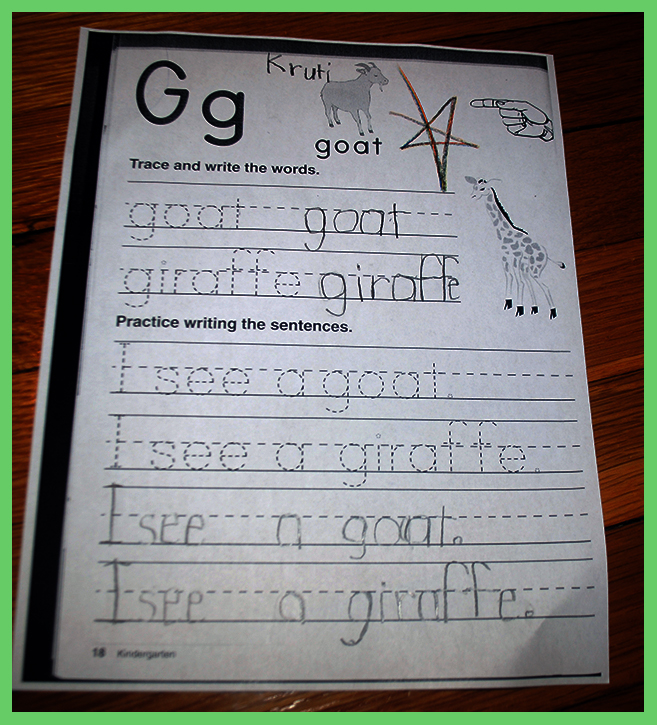 Kruti
Gg
goat
Trace and write the words.
goat goat
giraffe giraffe
Practice writing the sentences.
I see a goat.
I see a giraffe.
I see a goat.
I see a giraffe.
18 Kindergarten